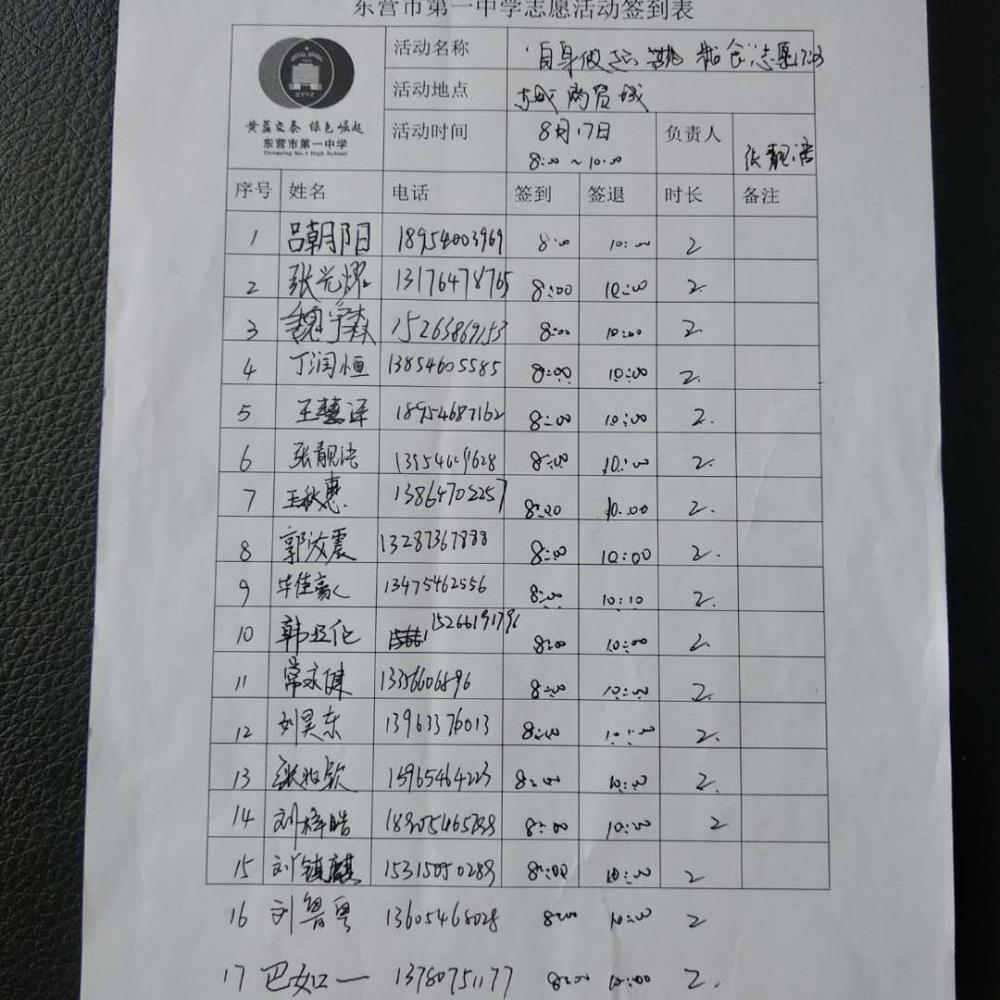 东营市第一中学志愿活动签到表
活动名称 自身做起 志愿活动
黄蓝交泰 绿色崛起
东营市第一中学
Dongying No.1 High School
活动地点 东城商贸城
活动时间 8月17日 8:00~10:00 负责人 张靓洁
序号 姓名 电话 签到 签退 时长 备注
1 吕朝阳 18954003969 8:00 10:00 2
2 张光耀 13176478765 8:00 10:00 2.
3 魏宇森 15263869153 8:00 10:00 2.
4 丁润恒 13854605585 8:00 10:00 2.
5 王慧泽 18954687162 8:00 10:00 2.
6 张靓洁 8:00 10:00 2.
7 王秋惠 13864702257 8:00 10:00 2.
8 郭汝震 13287367888 8:00 10:00 2.
9 毕佳豪 13475462556 8:00 10:10 2.
10 韩亚伦 8:00 10:00 2.
11 常永健 13356606896 8:00 10:00 2.
12 刘昊东 13963376013 8:00 10:00 2.
13 15965464223 8:00 10:00 2.
14 刘梓皓 8:00 10:00 2
15 刘镇麒 15315050289 8:00 10:00 2
16 刘鲁粤 13605468028 8:00 10:00 2
17 巴如一 13780751177 8:00 10:00 2.